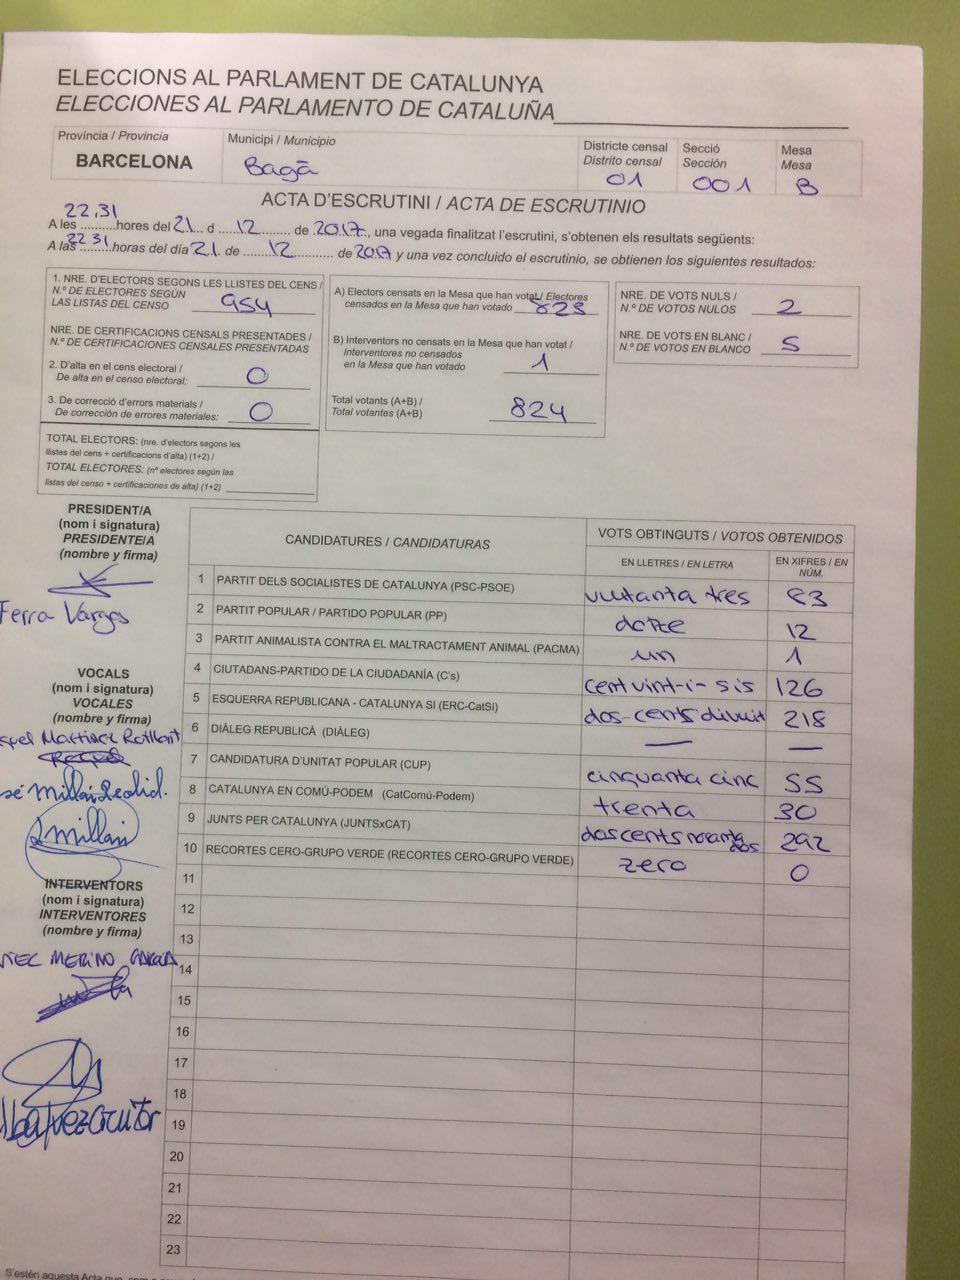 ELECCIONS AL PARLAMENT DE CATALUNYA
ELECCIONES AL PARLAMENTO DE CATALUÑA
Província / Provincia
BARCELONA
Municipi / Municipio
Bagà
Districte censal
Distrito censal
01
Secció
Sección
001
Mesa
Mesa
B
ACTA D'ESCRUTINI / ACTA DE ESCRUTINIO
A les 22,31 hores del 21 d 12 de 2017, una vegada finalitzat l'escrutini, s'obtenen els resultats següents:
A las 22 31 horas del día 21 de 12 de 2017 y una vez concluido el escrutinio, se obtienen los siguientes resultados:
1. NRE. D'ELECTORS SEGONS LES LLISTES DEL CENS /
N.º DE ELECTORES SEGÚN
LAS LISTAS DEL CENSO 954
NRE. DE CERTIFICACIONS CENSALS PRESENTADES /
N.º DE CERTIFICACIONES CENSALES PRESENTADAS
2. D'alta en el cens electoral /
De alta en el censo electoral: 0
3. De correcció d'errors materials /
De corrección de errores materiales: 0
TOTAL ELECTORS: (nre. d'electors segons les
llistes del cens + certificacions d'alta) (1+2) /
TOTAL ELECTORES: (nº electores según las
listas del censo + certificaciones de alta) (1+2)
A) Electors censats en la Mesa que han votat/ Electores
censados en la Mesa que han votado 823
B) Interventors no censats en la Mesa que han votat /
Interventores no censados
en la Mesa que han votado 1
Total votants (A+B) /
Total votantes (A+B) 824
NRE. DE VOTS NULS /
N.º DE VOTOS NULOS 2
NRE. DE VOTS EN BLANC /
N.º DE VOTOS EN BLANCO 5
PRESIDENT/A
(nom i signatura)
PRESIDENTE/A
(nombre y firma)
Ferra Vargas
VOCALS
(nom i signatura)
VOCALES
(nombre y firma)
Martínez Rotllant
Millan
Millan
INTERVENTORS
(nom i signatura)
INTERVENTORES
(nombre y firma)
MERINO GARCIA
CANDIDATURES / CANDIDATURAS
VOTS OBTINGUTS / VOTOS OBTENIDOS
EN LLETRES / EN LETRA
EN XIFRES / EN NÚM.
1 PARTIT DELS SOCIALISTES DE CATALUNYA (PSC-PSOE) vuitanta tres 83
2 PARTIT POPULAR / PARTIDO POPULAR (PP) dotze 12
3 PARTIT ANIMALISTA CONTRA EL MALTRACTAMENT ANIMAL (PACMA) un 1
4 CIUTADANS-PARTIDO DE LA CIUDADANÍA (C's) cent vint-i-sis 126
5 ESQUERRA REPUBLICANA - CATALUNYA SÍ (ERC-CatSí) dos-cents divuit 218
6 DIÀLEG REPUBLICÀ (DIÀLEG) — —
7 CANDIDATURA D'UNITAT POPULAR (CUP) cinquanta cinc 55
8 CATALUNYA EN COMÚ-PODEM (CatComú-Podem) trenta 30
9 JUNTS PER CATALUNYA (JUNTSxCAT) doscents noranta dos 292
10 RECORTES CERO-GRUPO VERDE (RECORTES CERO-GRUPO VERDE) zero 0
11
12
13
14
15
16
17
18
19
20
21
22
23
S'estén aquesta Acta que, com a